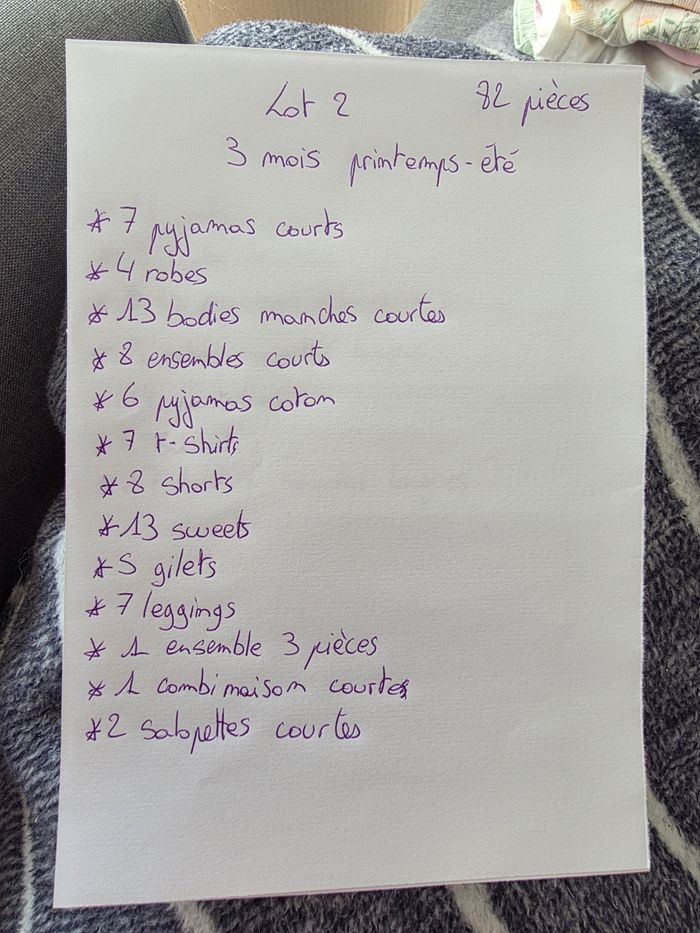 Lot 2 82 pièces
3 mois printemps-été
* 7 pyjamas courts
* 4 robes
* 13 bodies manches courtes
* 8 ensembles courts
* 6 pyjamas coton
* 7 t-shirts
* 8 shorts
* 13 sweets
* 5 gilets
* 7 leggings
* 1 ensemble 3 pièces
* 1 combinaison courte
* 2 salopettes courtes